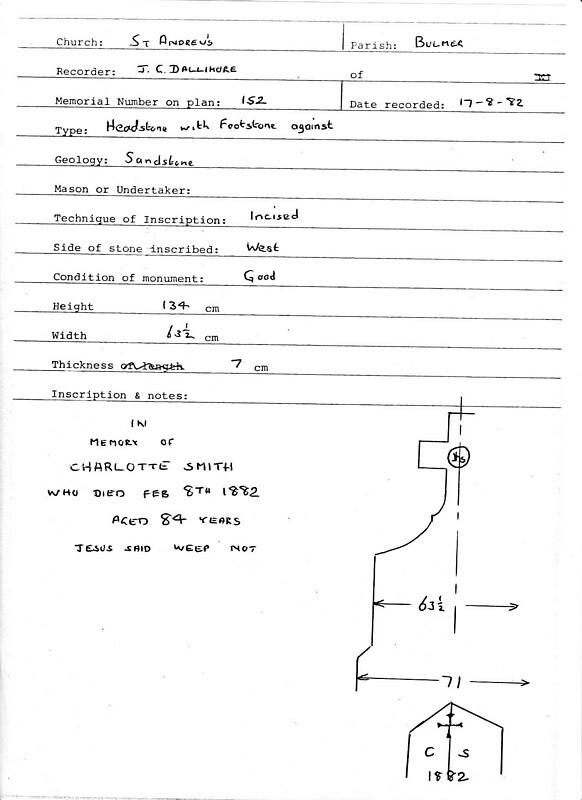 Church: St Andrew's Parish: Bulmer
Recorder: J. C. Dallimore of III
Memorial Number on plan: 152 Date recorded: 17-8-82
Type: Headstone with Footstone against
Geology: Sandstone
Mason or Undertaker:
Technique of Inscription: Incised
Side of stone inscribed: West
Condition of monument: Good
Height 134 cm
Width 63½ cm
Thickness or length 7 cm
Inscription & notes:
IN
MEMORY OF
CHARLOTTE SMITH
WHO DIED FEB 8TH 1882
AGED 84 YEARS
JESUS SAID WEEP NOT
IHS
63½
71
C S
1882